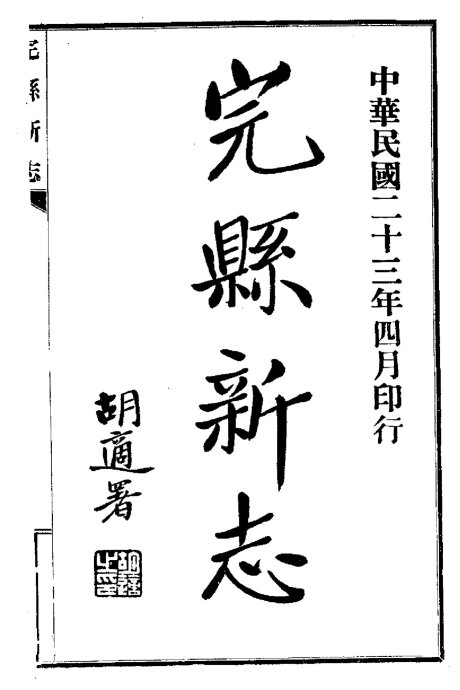 中華民國二十三年四月印行
完縣新志
胡適署
胡適之印
完縣新志